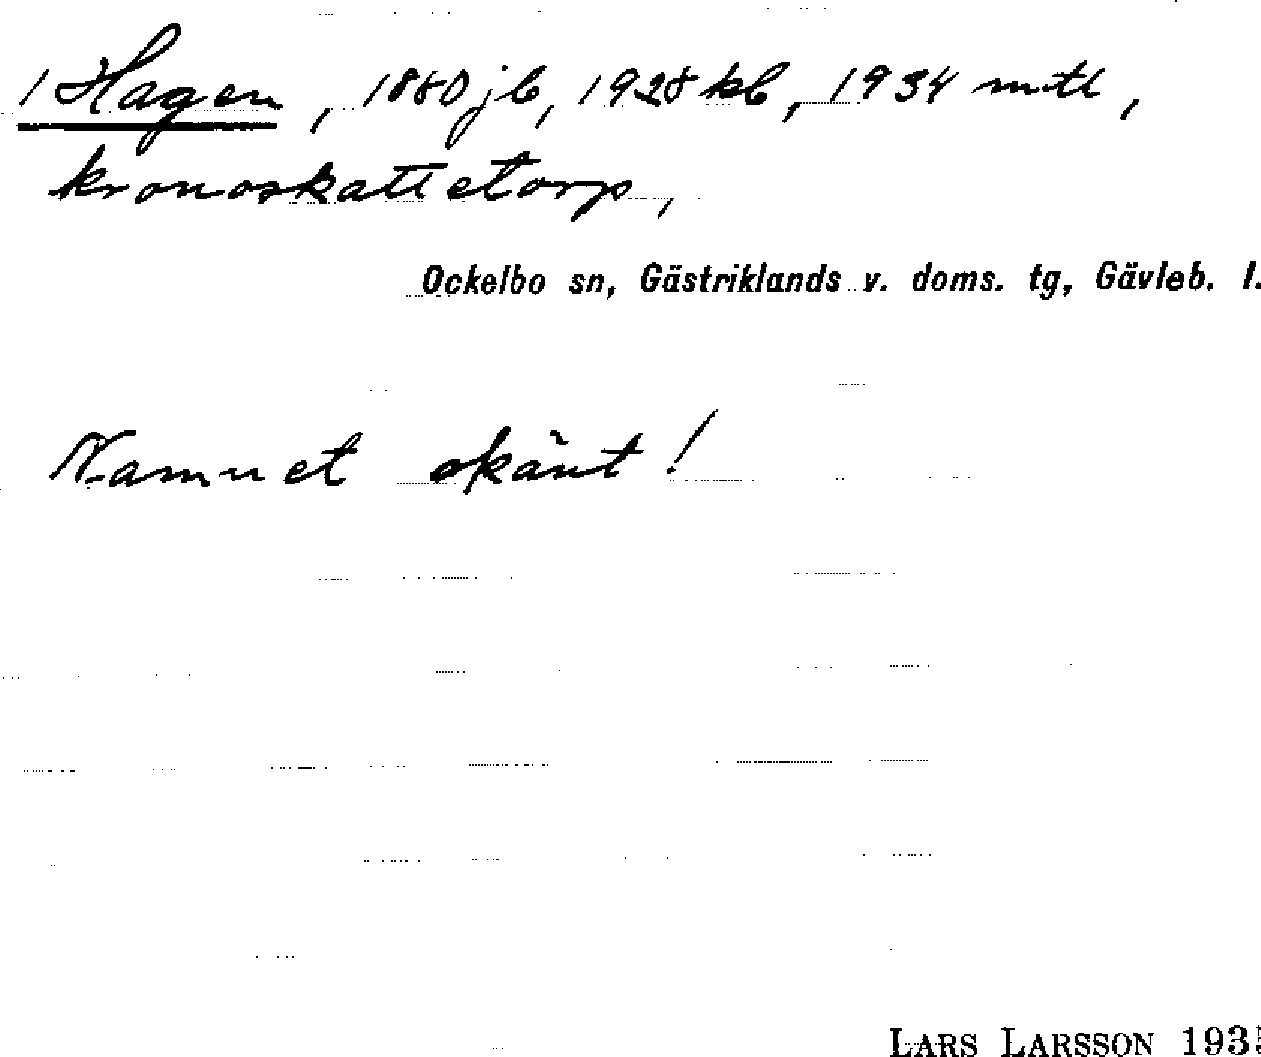 1 Hagen, 1880 jb, 1928 kb, 1934 mtl,
kronoskattetorp,
Ockelbo sn, Gästriklands v. doms. tg, Gävleb. l.
Namnet okänt!
LARS LARSSON